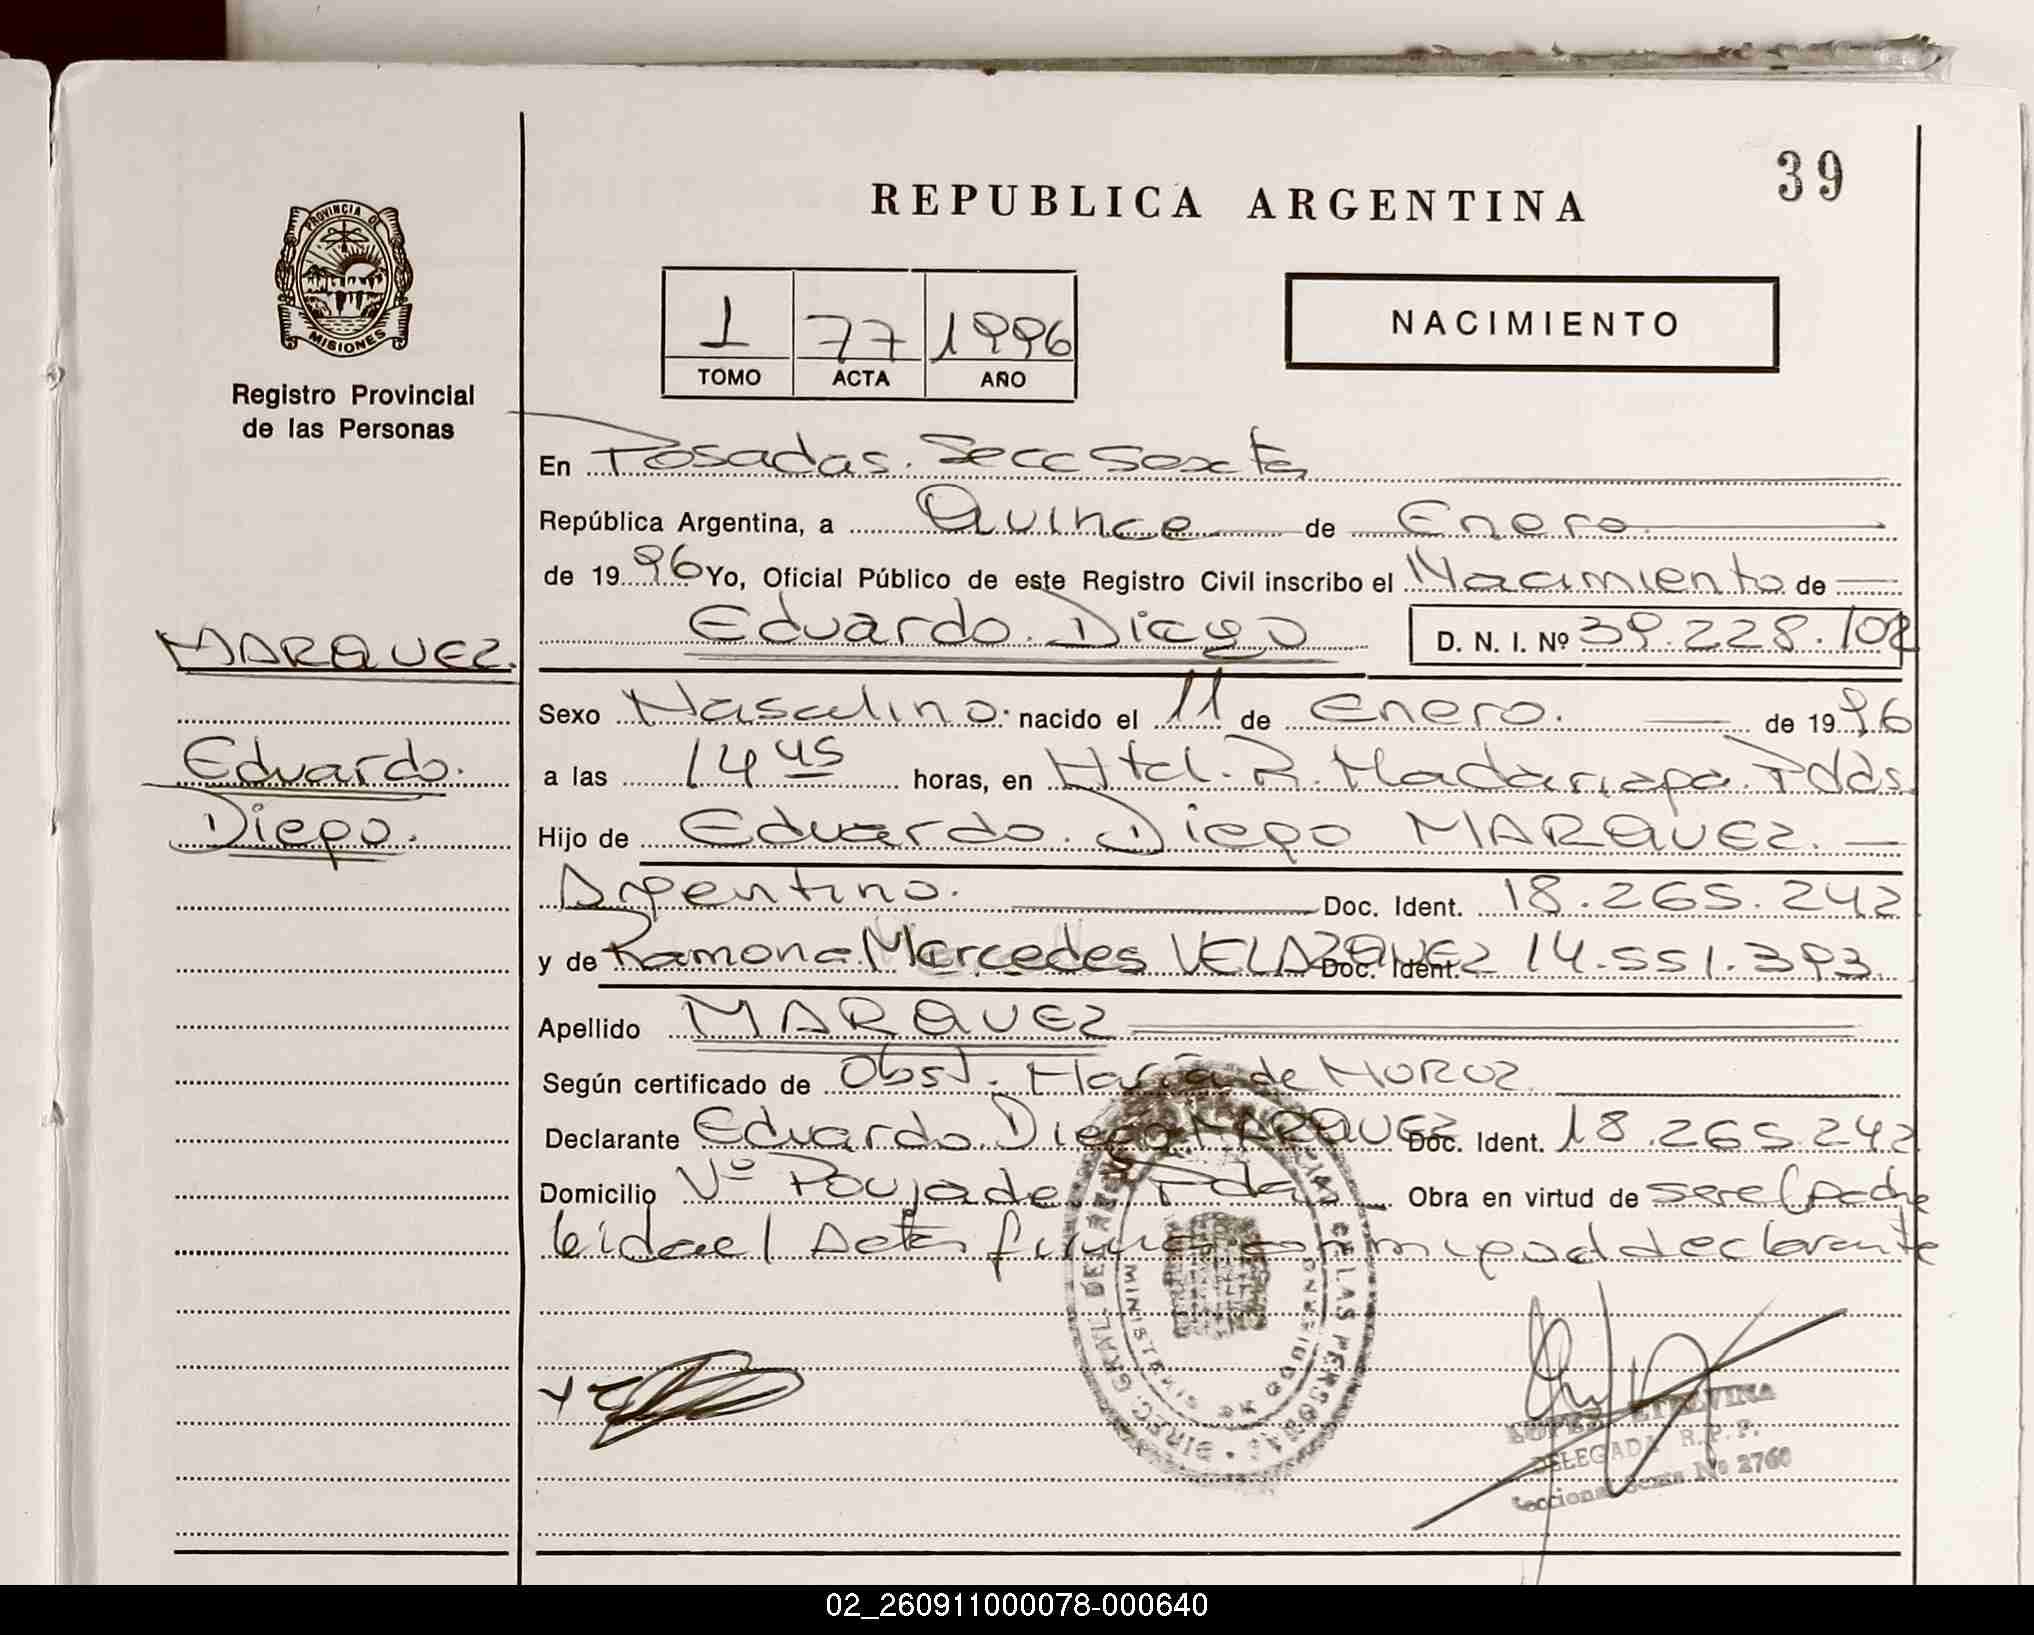 39
REPUBLICA ARGENTINA
PROVINCIA DE
MISIONES
Registro Provincial
de las Personas
1 77 1996
TOMO ACTA AÑO
NACIMIENTO
En Posadas. Secc Sexta
República Argentina, a Quince de Enero
de 1996 Yo, Oficial Público de este Registro Civil inscribo el Nacimiento de
Eduardo Diego D. N. I. Nº 39.228.102
MARQUEZ.
Eduardo.
Diego.
Sexo Masculino. nacido el 11 de Enero. de 1996
a las 14 45 horas, en Htal. R. Madariaga. Pdas.
Hijo de Eduardo Diego MARQUEZ.
Argentino. Doc. Ident. 18.265.242
y de Ramona Mercedes VELAZQUEZ Doc. Ident. 14.551.393
Apellido MARQUEZ
Según certificado de Obst. María de MOROZ
Declarante Eduardo Diego MARQUEZ Doc. Ident. 18.265.242
Domicilio Vº Poujade Pdas Obra en virtud de ser el padre
leida el Acta firma conmigo el declarante
DIREC. GRAL. DE REG. DE LAS PERSONAS
MINISTERIO DE GOBIERNO
LOPEZ ETELVINA
DELEGADA R. P. P.
Seccional Sexta Nº 2760
02_260911000078-000640